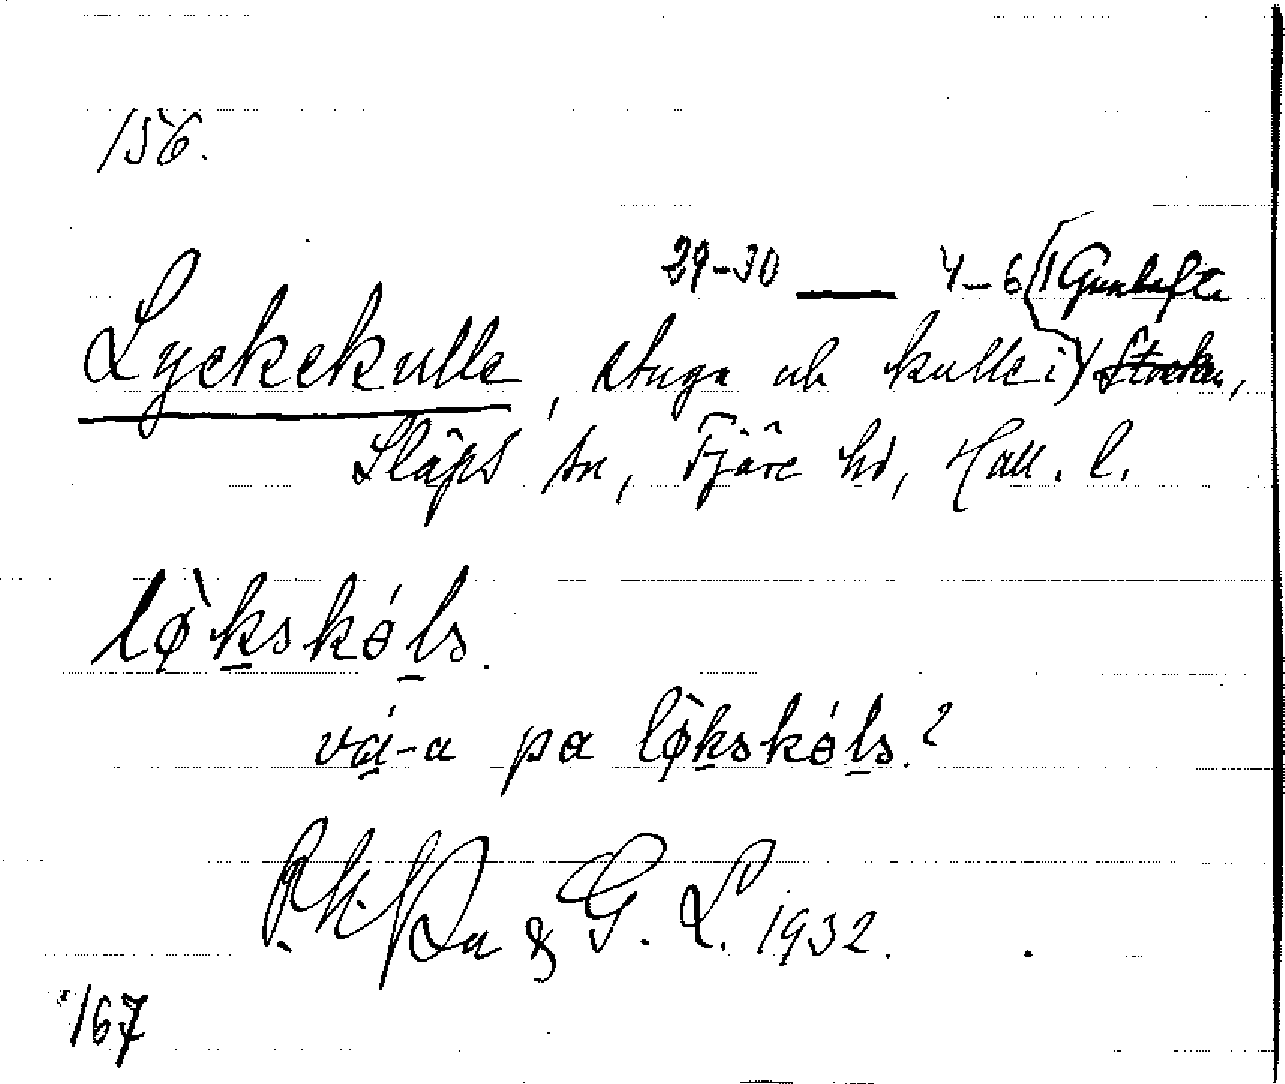 156.
29-30 — 4-6 (1 Gunhefte
Lyckekulle, stuga och kulle i) Stocken,
Släps sn, Fjäre hd, Hall. l.
lø̀kskóls.
vá-a pa lø̀kskóls?
& G. L. 1932.
167